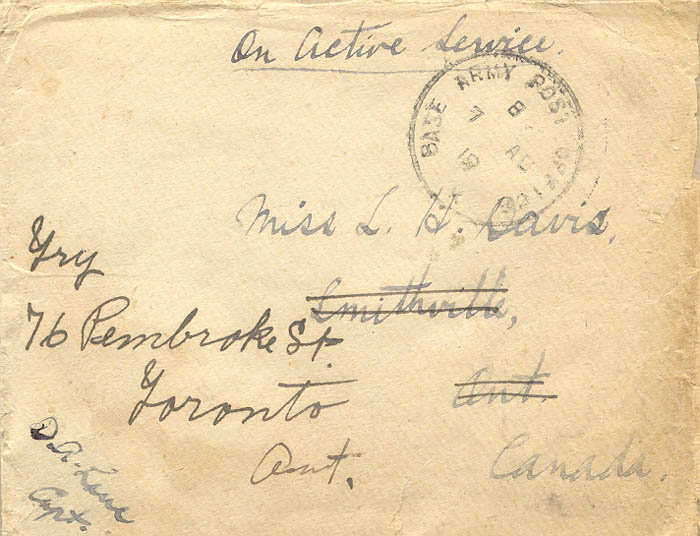 On Active Service.
BASE ARMY POST OFFICE
8
7 AU
19
Miss L. H. Davis,
Smithville,
Ont.
Canada.
Try
76 Pembroke St.
Toronto
Ont.
D.A. Lane
Capt.